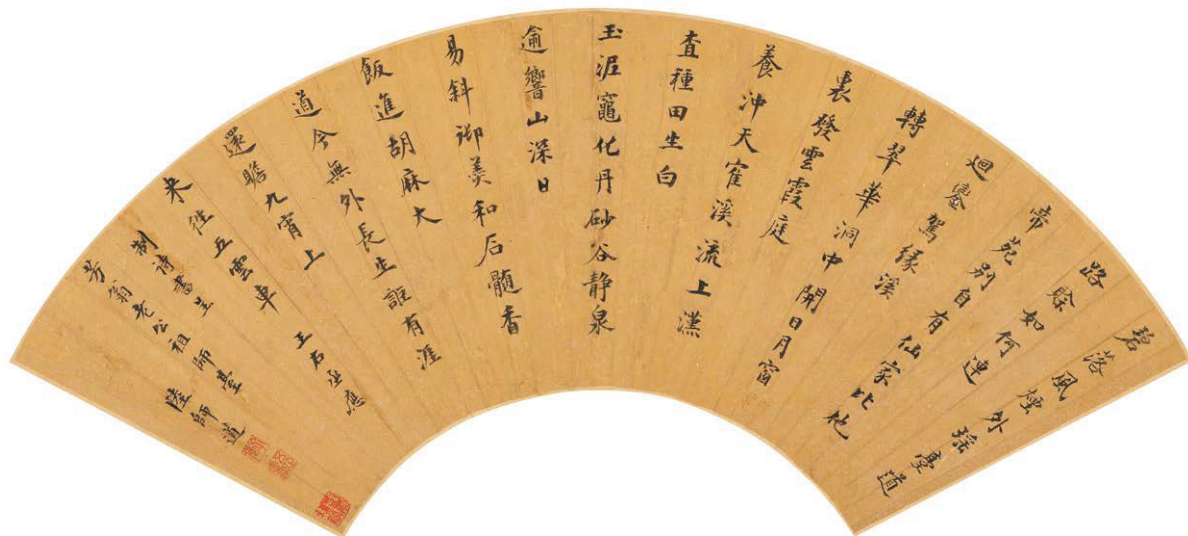 碧落風煙外瑶臺道
路賖如何連
帝苑別自有仙家此地
迴鑾駕緣溪
轉翠華洞中開日月窗
裏發雲霞庭
養沖天寉溪流上漢
査種田生白
玉泥竈化丹砂谷静泉
逾響山深日
易斜御羹和石髓香
飯進胡麻大
道今無外長生詎有涯
還瞻九霄上
来往五雲車 王右丞應
制詩書呈
芳翁老公祖師臺 陸師道